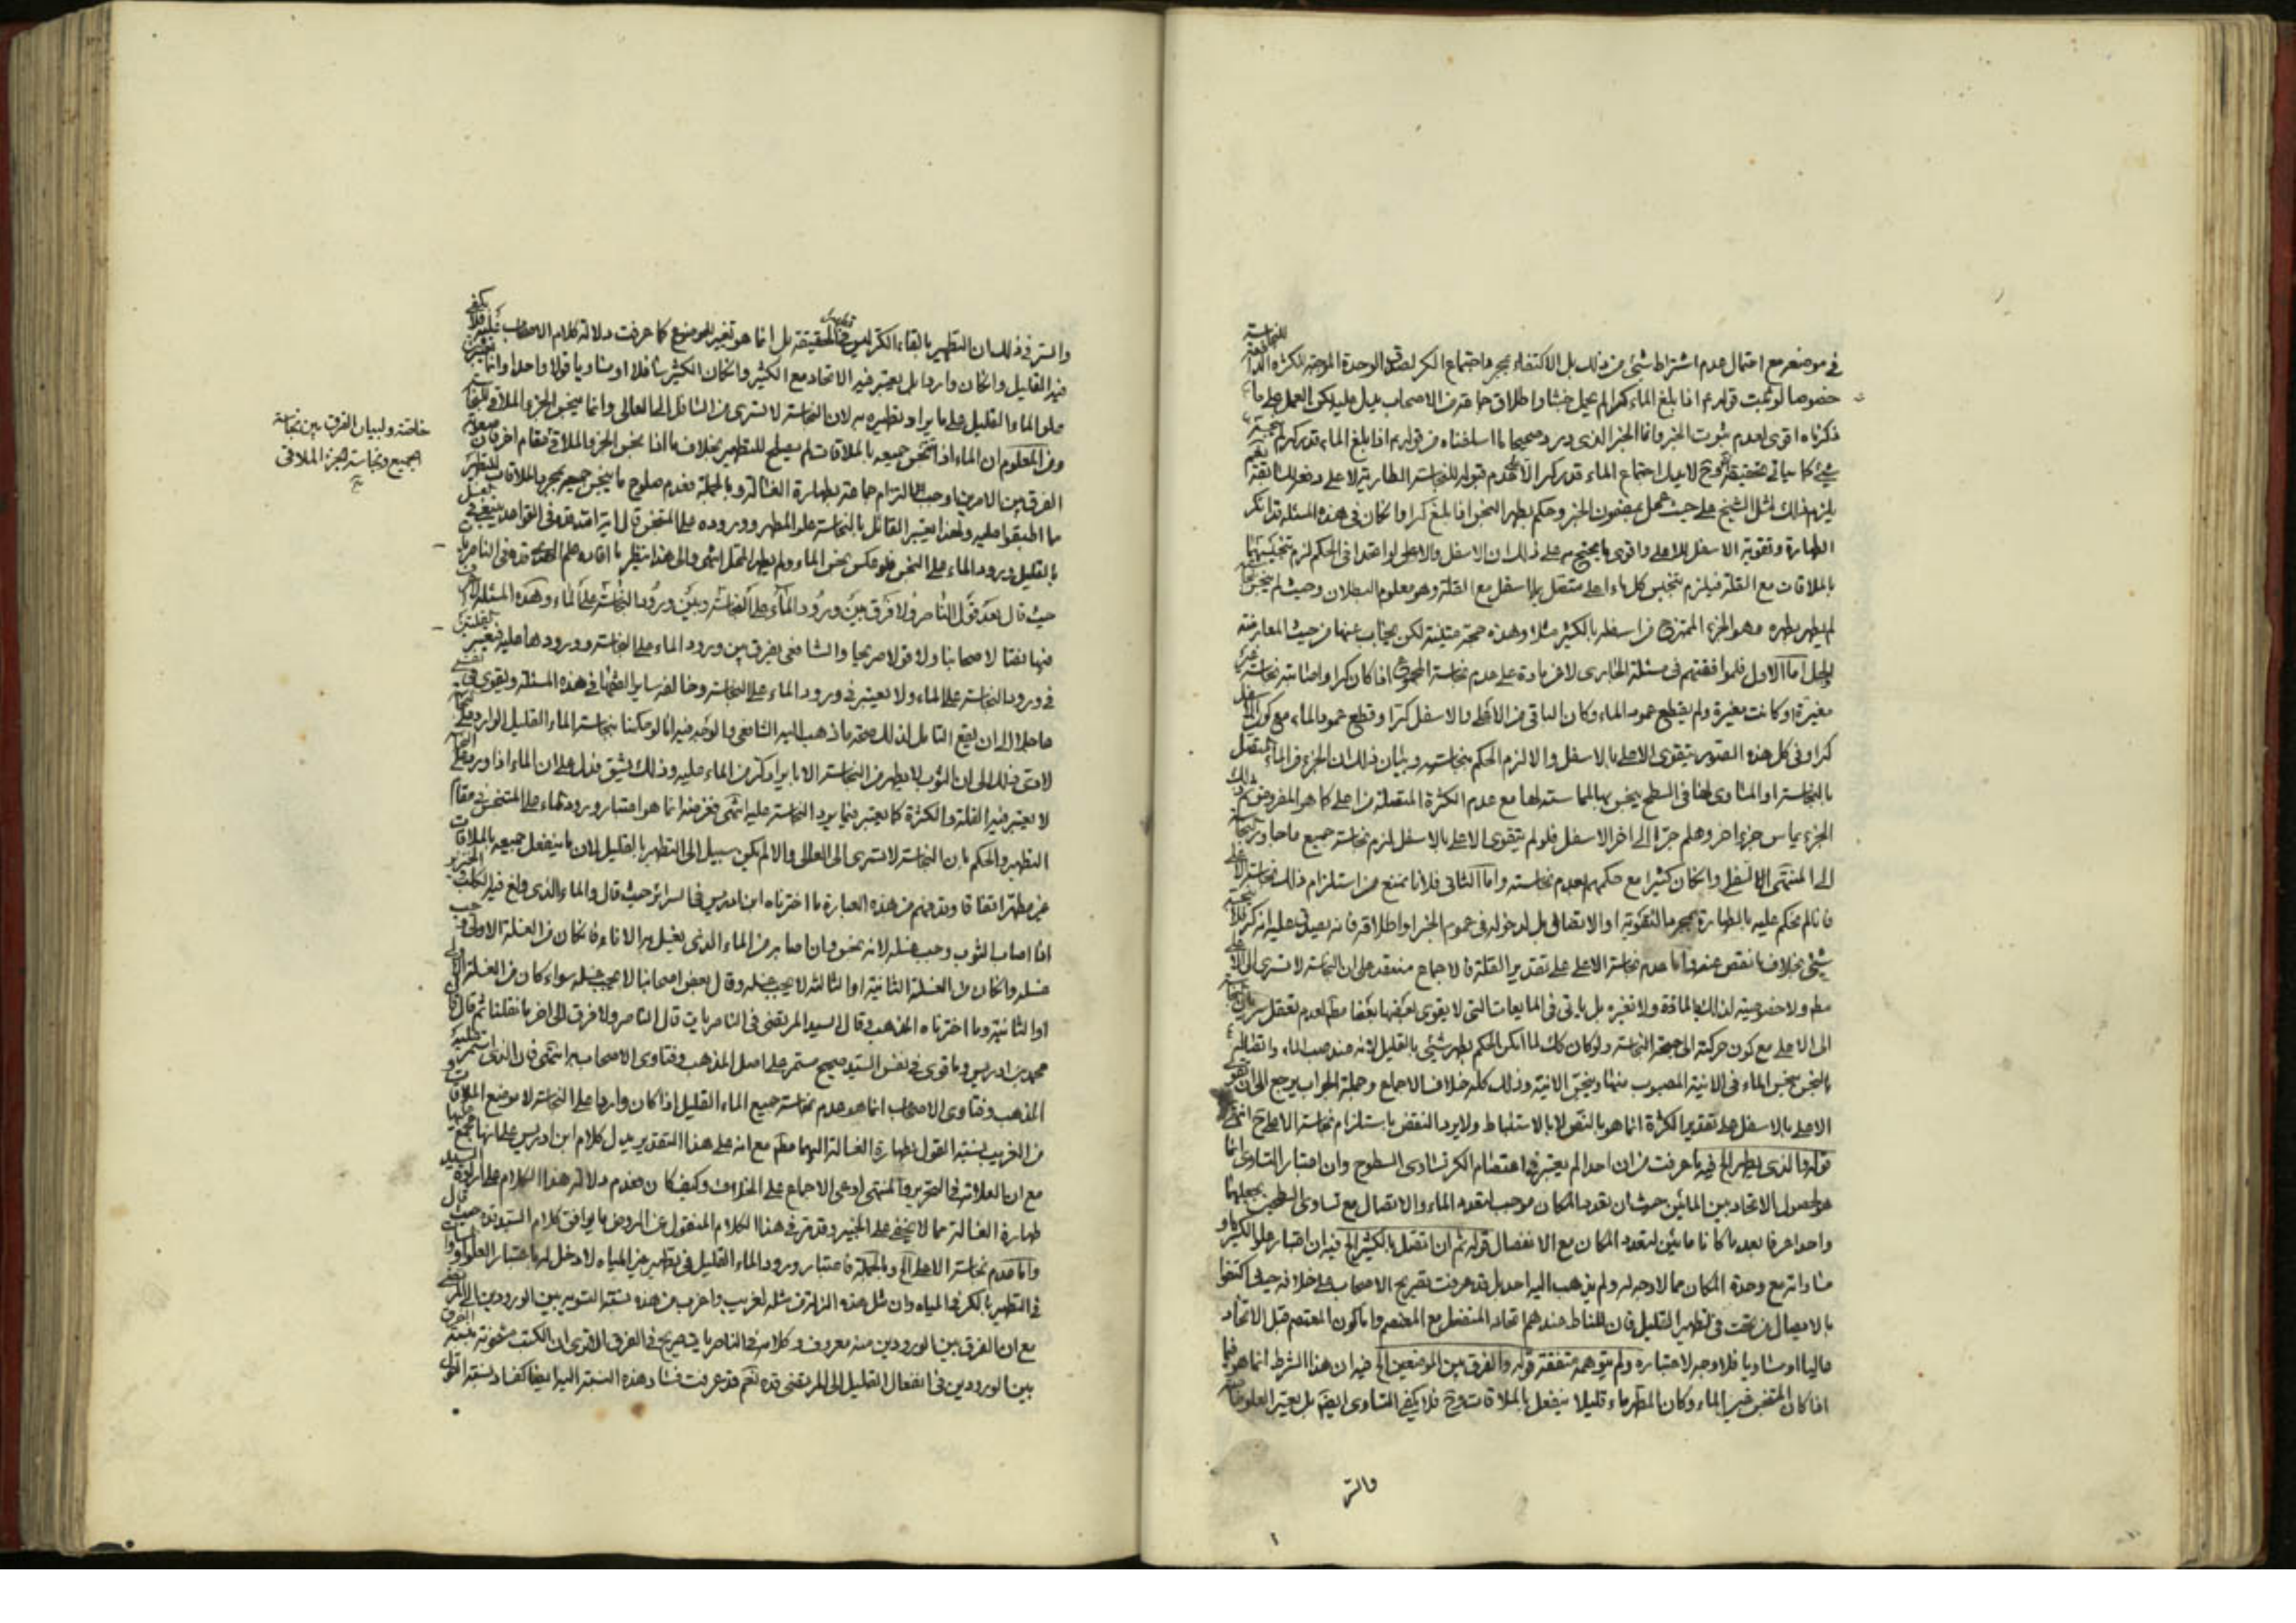 في موضعه مع احتمال عدم اشتراط شئ من ذلك بل الاكتفاء بمجرد اجتماع الكر لصدق الوحدة الموجبة للكثرة الدافعة للنجاسة
خصوصا لو ثبت قوله ع اذا بلغ الماء كرا لم يحمل خبثا واطلاق جماعة من الاصحاب يدل عليه لكن العمل على ما
ذكرناه اقوى لعدم ثبوت الخبر وانما الخبر الذي ورد صحيحا ما اسلفناه من قوله ع اذا بلغ الماء قدر كر لم ينجسه
شئ كما سيأتي تحقيقه وح لا يدل اجتماع الماء قدر كر الا على عدم قبوله للنجاسة الطارية لا على دفع السابقة
يلزم ذلك مثل الشيخ على حيث عمل بمضمون الخبر وحكم بطهر النجس اذا بلغ كرا وان كان في هذه المسئلة قد انكر
الطهارة وتقوية الاسفل للاعلى واقوى ما يحتج به على ذلك ان الاسفل والاعلى لو اتحدا في الحكم لزم تنجيس
بالملاقات مع القلة فيلزم تنجيس كل ماء اعلى متصل بماء اسفل مع القلة وهو معلوم البطلان وحيث لم ينجس
لم يطهر بطهره وهو الجزء الممتزج من اسفله بالكثير مثلا وهذه حجة متينة لكن يجاب عنها من حيث المعارضة
والحل اما الاول فلموافقتهم في مسئلة الجاري لا عن مادة على عدم نجاسة المجموع اذا كان كرا واصابته نجاسة غير
مغيرة او كانت مغيرة ولم يقطع عمود الماء وكان الباقي من الاعلى والاسفل كرا او قطع عمود الماء مع كون الاسفل
كرا وفي كل هذه الصور يتقوى الاعلى بالاسفل والا لزم الحكم بنجاسته وبيان ذلك ان الجزء من الماء المتصل
بالنجاسة او المساوي لها في السطح ينجس بها لمماستها مع عدم الكثرة المتصلة من اعلى كما هو المفروض ثم ذلك
الجزء يماس جزءا اخر وهلم جرا الى اخر الاسفل فلو لم يتقوى الاعلى بالاسفل لزم نجاسة جميع ما جاور النجاسة
الى المنتهى الاسفل وان كان كثيرا مع حكمهم بعدم نجاسته واما الثاني فلانا نمنع من استلزام ذلك نجاسة الاعلى
فانا لم نحكم عليه بالطهارة بمجرد التقوية او الاتصال بل لدخوله في عموم الخبر او اطلاقه فانه يصدق عليه انه كر فلا ينجسه
شئ بخلاف ما نقص عنه واما عدم نجاسة الاعلى على تقدير القلة فالاجماع منعقد على ان النجاسة لا تسرى الى الاعلى
مطم ولا خصوصية لذلك بالمادة ولا بغيره بل ياتي في المايعات التي لا يقوى بعضها بعضا مطم لعدم تعقل سريان النجاسة
الى الاعلى مع كون حركته الى جهة النجاسة ولو كان كك لما امكن الحكم بطهر شئ بالقليل لانه عند صب الماء واتصاله
بالنجس ينجس الماء في الانية المصبوب منها وينجس الانية وذلك كله خلاف الاجماع وجملة الجواب يرجع الى ان تقوى
الاعلى بالاسفل على تقدير الكثرة انما هو بالنص لا بالاستنباط ولا يرد النقض باستلزام نجاسة الاعلى ح انتهى
قوله والذي يظهر الخ فيه ما عرفت من ان احدا لم يعتبر في اعتصام الكر تساوي السطوح وان اعتبار التساوي انما
هو لحصول الاتحاد بين المائين حيث ان تعدد المكان موجب لتعدد الماء والاتصال مع تساوي السطحين يجعلهما
واحدا عرفا بعد ما كانا مائين لتعدد المكان مع الانفصال قوله ثم ان اتصل بالكثير الخ فيه ان اعتبار علو الكثير او
مساواته مع وحدة المكان مما لا وجه له ولم يذهب اليه احد بل قد عرفت تصريح الاصحاب على خلافه حيث اكتفوا
بالاتصال من تحت في تطهير القليل فان المناط عندهم اتحاد المنفعل مع المعتصم واما كون المعتصم قبل الاتحاد
عاليا او مساويا فلا وجه لاعتباره ولم يتوهمه متفقه قوله والفرق بين الموضعين الخ فيه ان هذا الشرط انما هو فيما
اذا كان المتنجس غير الماء وكان المطهر ماء قليلا ينفعل بالملاقات وح فلا يكفي التساوي ايضا بل يعتبر العلو
والسر
والسر في ذلك ان التطهير بالقاء الكر ليس تطهيرا في الحقيقة بل انما هو تغيير للموضوع كما عرفت دلالة كلام الاصحاب عليه فلا يكفي
فيه القليل وان كان واردا بل يعتبر فيه الاتحاد مع الكثير وان كان الكثير سافلا او مساويا قولا واحدا وانما يعتبر
علو الماء القليل على ما يراد تطهيره به لان النجاسة لا تسرى من السافل الى العالي وانما ينجس الجزء الملاقي للنجاسة
ومن المعلوم ان الماء اذا تنجس جميعه بالملاقات لم يصلح للتطهير بخلاف ما اذا نجس الجزء الملاقي فقام اخر مقامه
الفرق بين الامرين اوجب التزام جماعة بطهارة الغسالة وبالجملة فعدم صلوح ما ينجس جميعه بمجرد الملاقات للتطهير
مما اطبقوا عليه ولهذا يعتبر القائل بالنجاسة علو المطهر ووروده على المتنجس قال اية الله قده في القواعد ينبغي في الغسل
بالقليل ورود الماء على النجس فلو عكس نجس الماء ولم يطهر المحل انتهى والى هذا ينظر ما افاده علم الهدى قده في الناصريات
حيث قال بعد قول الناصر ولا فرق بين ورود الماء على النجاسة وبين ورود النجاسة على الماء وهذه المسئلة لا اعرف
فيها نصا لاصحابنا ولا قولا صريحا والشافعي يفرق بين ورود الماء على النجاسة وورودها عليه فيعتبر القلتين
في ورود النجاسة على الماء ولا يعتبر في ورود الماء على النجاسة وخالفه ساير الفقهاء في هذه المسئلة ويقوى في نفسي
عاجلا الى ان يقع التامل لذلك صحة ما ذهب اليه الشافعي والوجه فيه انا لو حكمنا بنجاسة الماء القليل الوارد على النجاسة
لادى ذلك الى ان الثوب لا يطهر من النجاسة الا بايراد كر من الماء عليه وذلك يشق فدل على ان الماء اذا ورد على النجاسة
لا يعتبر فيه القلة والكثرة كما يعتبر فيما يرد النجاسة عليه انتهى فغرضه انما هو اعتبار ورود الماء على المتنجس في مقام
التطهير والحكم بان النجاسة لا تسرى الى العالي والا لم يكن سبيل الى التطهير بالقليل لان ما ينفعل جميعه بالملاقات
غير مطهر اتفاقا وقد فهم من هذه العبارة ما اخترناه ابن ادريس في السرائر حيث قال والماء الذي ولغ فيه الكلب والخنزير
اذا اصاب الثوب وجب غسله لانه نجس وان اصابه من الماء الذي يغسل به الاناء فان كان من الغسلة الاولى وجب
غسله وان كان من الغسلة الثانية او الثالثة لا يجب غسله وقال بعض اصحابنا لا يجب غسله سواء كان من الغسلة الاولى
او الثانية وما اخترناه المذهب وقال السيد المرتضى في الناصريات قال الناصر ولا فرق الى اخر ما نقلنا ثم قال قال
محمد بن ادريس وما قوى في نفس السيد صحيح مستمر على اصل المذهب وفتاوى الاصحاب به انتهى فان الذي استمر عليه
المذهب وفتاوى الاصحاب انما هو عدم نجاسة جميع الماء القليل اذا كان واردا على النجاسة لا موضع الملاقات و
من الغريب نسبة القول بطهارة الغسالة اليهما مطم مع انه على هذا التقدير يدل كلام ابن ادريس على انها مجمع عليها
مع ان العلامة في التحرير والمنتهى ادعى الاجماع على الخلاف وكيف كان فعدم دلالة هذا الكلام على ارادة السيد
طهارة الغسالة مما لا يخفى على الخبير وقد مر في هذا الكلام المنقول عن الروض ما يوافق كلام السيد قده حيث قال
واما عدم نجاسة الاعلى الخ وبالجملة فاعتبار ورود الماء القليل في تطهير غير المياه لا دخل له باعتبار العلو او المساوات
في التطهير بالكر في المياه وان مثل هذه الزلة من مثله لغريب واغرب من هذه نسبة التسوية بين الورودين الى المرتضى
مع ان الفرق بين الورودين منه معروف وكلامه في الناصريات صريح في الفرق الا ترى ان الكتب مشحونة بنسبة الفرق
بين الورودين في انفعال القليل الى المرتضى قده نعم قد عرفت فساد هذه النسبة اليه ايضا كفساد نسبة القول
خلصة ولبيان الفرق بين نجاسة
الجميع ونجاسة الجزء الملاقي